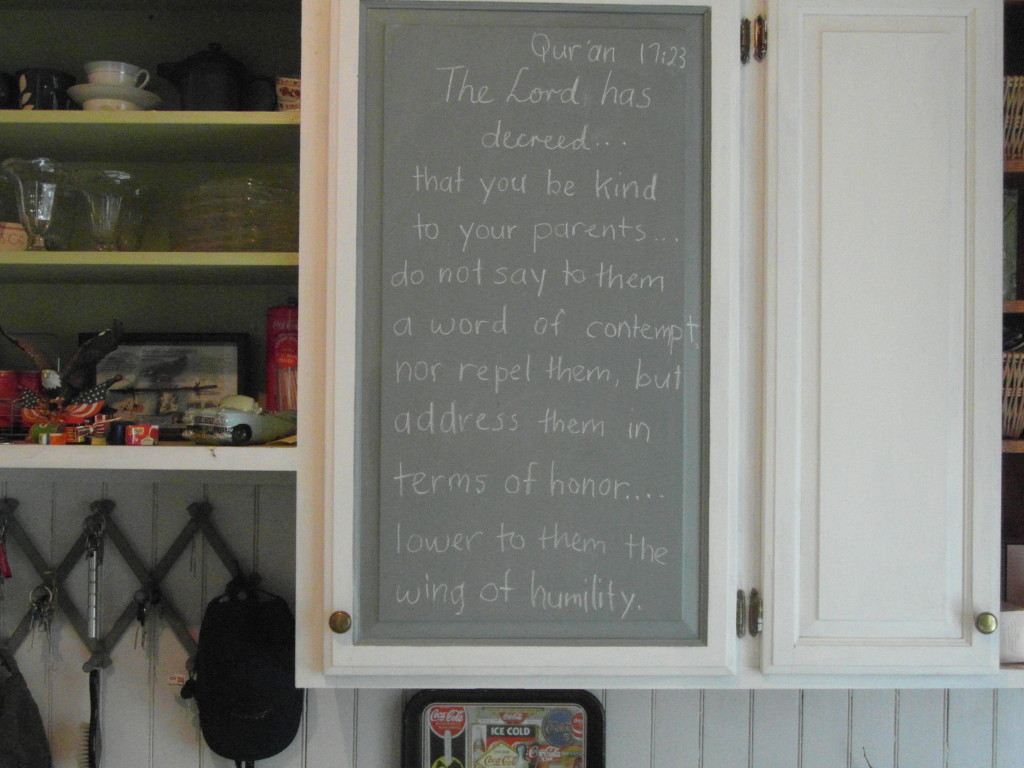 Qur'an 17:23
The Lord has
decreed...
that you be kind
to your parents...
do not say to them
a word of contempt
nor repel them, but
address them in
terms of honor....
lower to them the
wing of humility.
Coca-Cola
ICE COLD
Coca-Cola